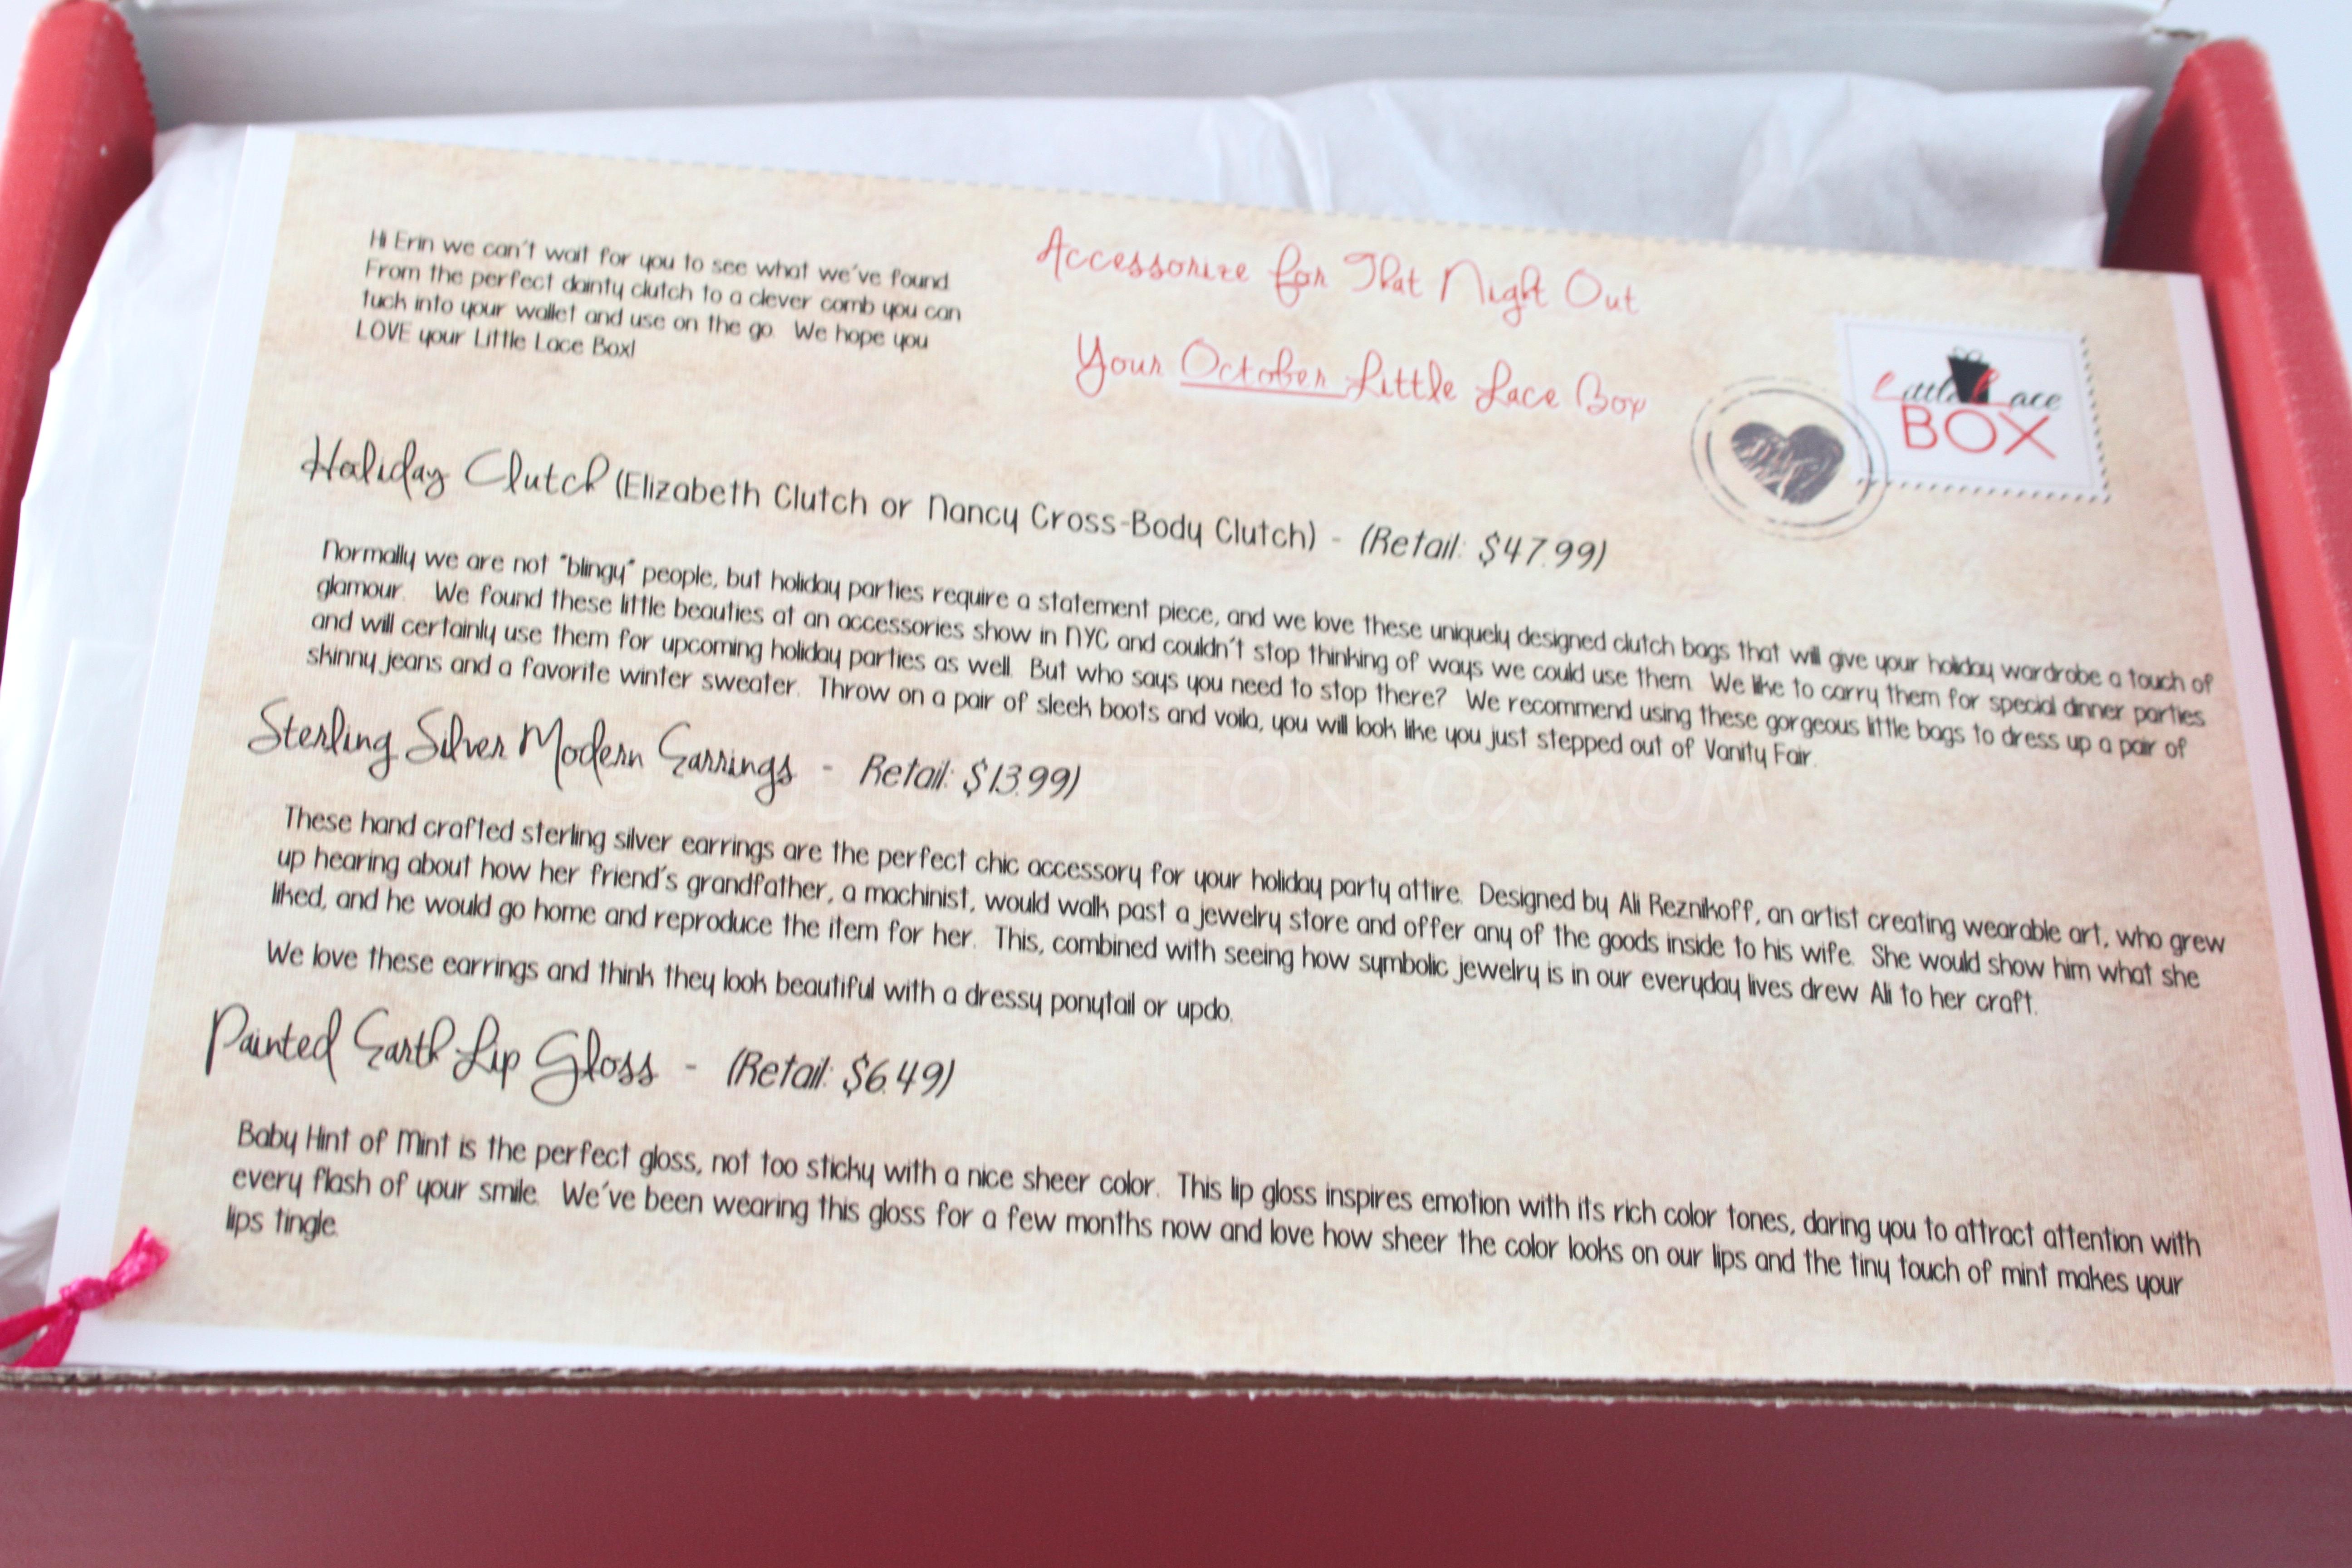 Hi Erin we can't wait for you to see what we've found.
From the perfect dainty clutch to a clever comb you can
tuck into your wallet and use on the go. We hope you
LOVE your Little Lace Box!
Accessorize for That Night Out
Your October Little Lace Box
Little Lace
BOX
Holiday Clutch (Elizabeth Clutch or Nancy Cross-Body Clutch) - (Retail: $47.99)
Normally we are not "blingy" people, but holiday parties require a statement piece, and we love these uniquely designed clutch bags that will give your holiday wardrobe a touch of
glamour. We found these little beauties at an accessories show in NYC and couldn't stop thinking of ways we could use them. We like to carry them for special dinner parties
and will certainly use them for upcoming holiday parties as well. But who says you need to stop there? We recommend using these gorgeous little bags to dress up a pair of
skinny jeans and a favorite winter sweater. Throw on a pair of sleek boots and voila, you will look like you just stepped out of Vanity Fair.
Sterling Silver Modern Earrings - Retail: $13.99)
SUBSCRIPTIONBOXMOM
These hand crafted sterling silver earrings are the perfect chic accessory for your holiday party attire. Designed by Ali Reznikoff, an artist creating wearable art, who grew
up hearing about how her friend's grandfather, a machinist, would walk past a jewelry store and offer any of the goods inside to his wife. She would show him what she
liked, and he would go home and reproduce the item for her. This, combined with seeing how symbolic jewelry is in our everyday lives drew Ali to her craft.
We love these earrings and think they look beautiful with a dressy ponytail or updo.
Painted Earth Lip Gloss - (Retail: $6.49)
Baby Hint of Mint is the perfect gloss, not too sticky with a nice sheer color. This lip gloss inspires emotion with its rich color tones, daring you to attract attention with
every flash of your smile. We've been wearing this gloss for a few months now and love how sheer the color looks on our lips and the tiny touch of mint makes your
lips tingle.